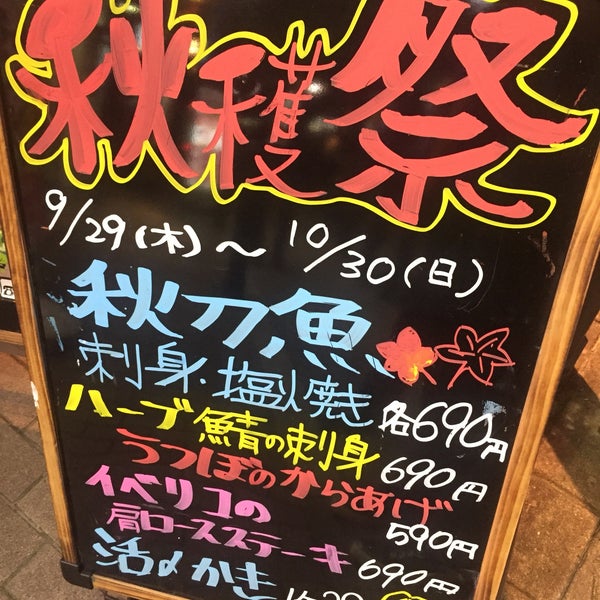 秋穫祭
9/29(木)～10/30(日)
秋刀魚
刺身・塩焼き 各690円
ハーブ鯖の刺身 690円
うつぼのからあげ 590円
イベリコの
肩ロースステーキ 690円
活〆かき